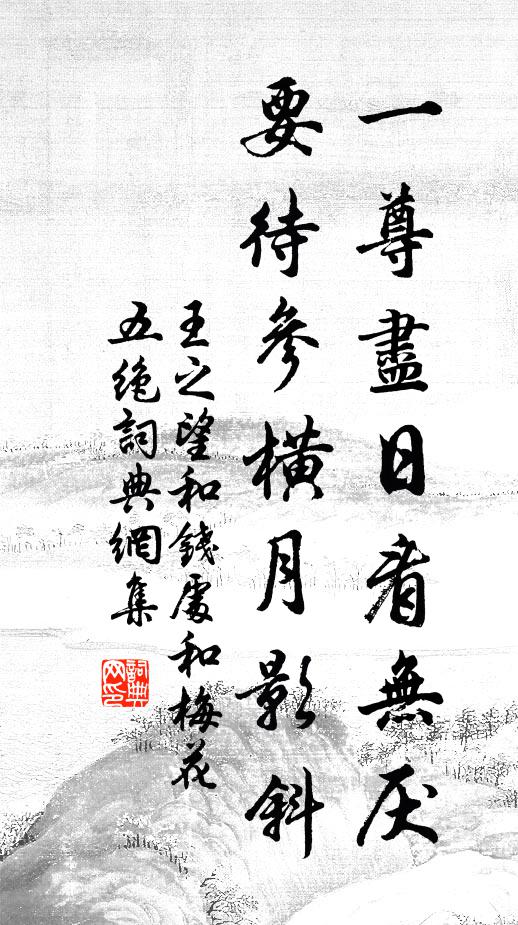 一尊盡日看無厌
要待參橫月影斜
王之望和錢處和梅花
五絶詞典網集
詞典网印